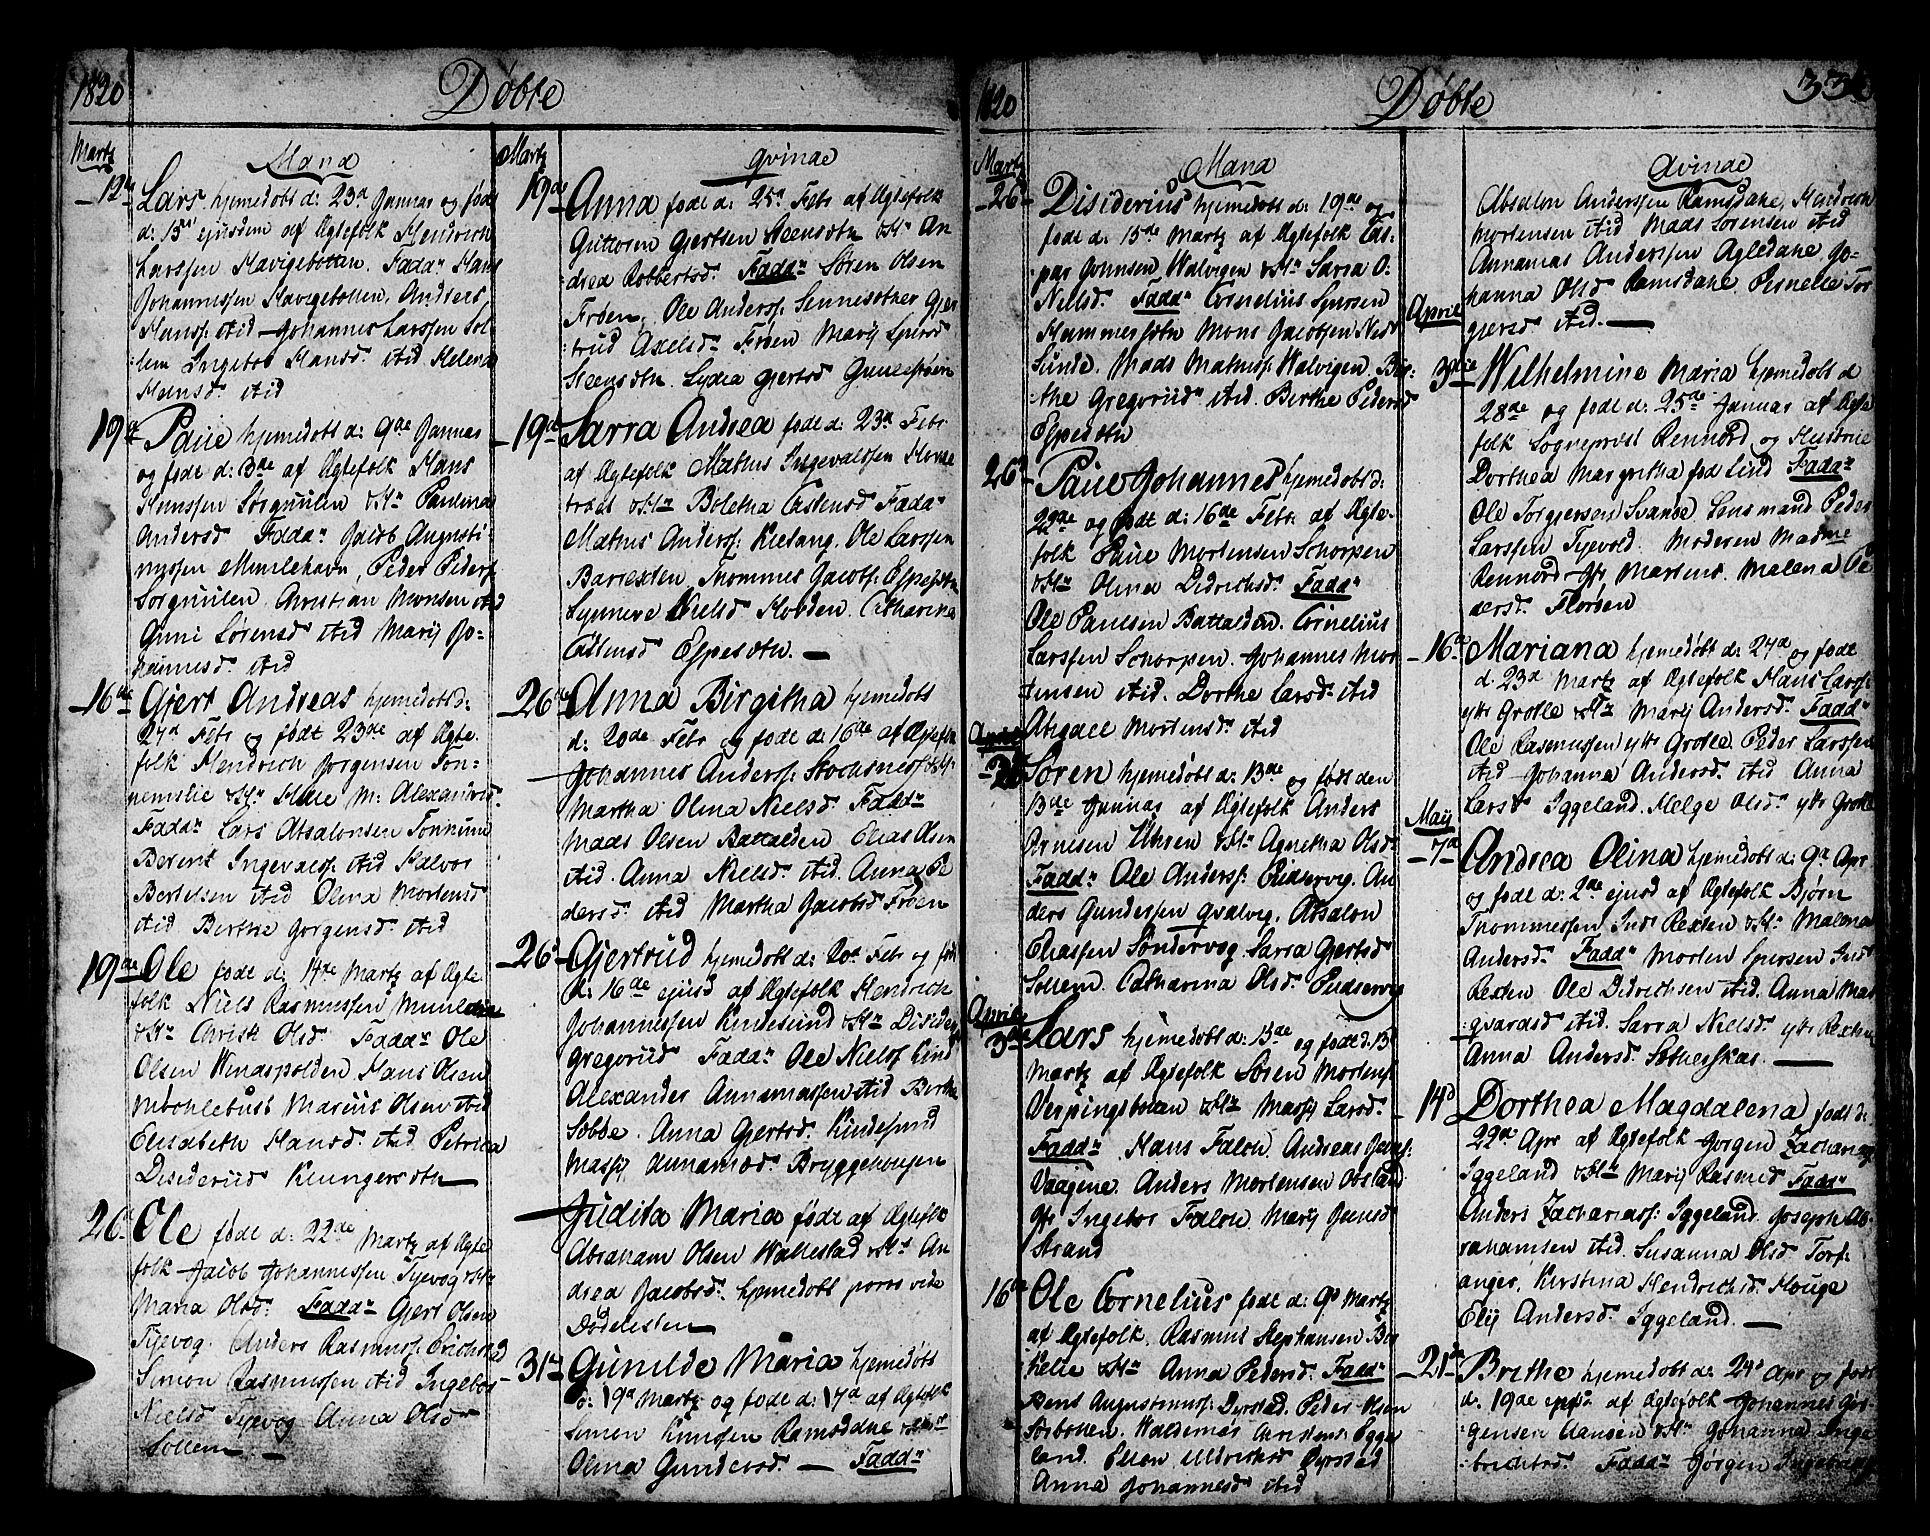 1820 Døbte
Martz Mana
12te Lars hjemedøbt d: 23d Januar og født
d: 13d ejusdem af Ægtefolk Hendrich
Larssen Havigebotten. Fadd: Hans
Johannessen Havigebotten, Anders
Hanss: itid Johannes Larssen Sol-
:lem Ingebor Hansd: itid Helena
Hansd: itid
19de Paul hjemedøbt d: 9de Januar
og føde d: 3de af Ægtefolk Hans
Hanssen Sørgulen & H: Paulina
Andersd Fadd: Jacob Augusti-
nussen Mulehavn, Peder Peders
Sørgulen Christian Monsen itid
Anne Sørensd itid Marij Jo-
hannesd: itid
16de Gjert Andreas hjemedøbt d:
24d Febr og født 23de af Ægte-
folk Hendrich Jørgensen Ton-
nemslie & H: Helle M: Alexandrd:
Fadd: Lars Absalonsen Tonnum
Berent Ingevalds: itid Halvor
Bertelsen itid Olina Mortensd
itid Berthe Jørgensd: itid
19de Ole føde d: 14te Martz af Ægte
folk Niels Rasmussen
& H: Christi Olsd: Fadd: Ole
Olsen Wenaspolden Hans Olsen
Mehlebust Marius Olsen itid
Elisabeth Hansd: itid Petrica
Disideriid Klungersetn
26d Ole føde d: 22de Martz af Ægte
folk Jacob Johannessen Tyevog & H:
Maria Olsd: Fadd: Gjert Olsen
Tyevog. Anders Rasmuss: Erichstad
Simon Rasmussen itid Ingebor
Nielsd Tyevog Anna Olsd:
Sollem
Martz Qvinde
19de Anna føde d: 25d Febr af Ægtefolk
Guttorm Gjertsen Steensøtn & H: An
drea Robbertsd: Fadd: Søren Olsen
Frøen, Ole Anderss: Sennesøtner Gjer
trud Axelsd: Frøen Marij Sjursd
Steensøtn. Lydia Gjertsd
19de Sarra Andrea føde d: 23d Febr
af Ægtefolk Mathis Ingevaldsen Horne
& H: Boletha Castensd Fadd:
Mathis Anderss: Kielang. Ole Larssen
Barrexten, Thommes Jacobs: Espesøtn
Synneve Nielsd Hovden. Catharina
Castensd Espesøtn.
26de Anna Birgitha hjemedøbt
d: 20de Febr og føde d: 16de af Ægtefolk
Johannes Anderss: Stochsness & H:
Martha Olina Nielsd: Fadd:
Mads Olsen Battalden Elias Olsen
itid. Anna Nielsd: itid. Anna Pe
dersd: itid Martha Jacobsd Frøen
26d Gjertrud hjemedøbt d: 20d Febr og født
d: 16de ejusd af Ægtefolk Hendrich
Johannessen Kindesund & H: Disider
Gregoriid Fadd: Ole Niels: Kind
Alexander Annanassen itid Berthe
Sobbe. Anna Gjertsd: Kindesund
Massij Annanasd: Bryggehougen
Judita Maria født af Ægtefolk
Abraham Olsen Wallestad & H: An
drea Jacobsd: hjemedøbt poros vide
Dødelisten
31te Gunilde Maria hjemedøbt
d: 19d Martz og føde d: 17d af Ægtefolk
Simen Knussen Ramsdahe & H:
Olina Gundersd: Fadd:
1820 Døbte
Martz Mana
26 Disiderius hjemedøbt d: 19de og
føde d: 15de Martz af Ægtefolk Cas-
:par Joensen Walvigen & H: Sarra O-
Nielsd: Fadd: Cornelius Sjursen
Hammersøtn Mons Jacobsen Ned
Sunde. Mads Mathiss: Walvigen. Bir-
the Gregoriid itid. Berthe Pedersd
Espesøtn
26d Paul Johannes hjemedøbt d:
22de og født d: 16de Febr af Ægte-
folk Paul Mortensen Schorpen
& H: Olina Didrichsd. Fadd:
Ole Paulsen Battalden. Cornelius
Larssen Schorpen. Johannes Mor
tensen itid. Dorthe Larsd: itid
Abigael Mortensd: itid
April
2d Søren hjemedøbt d: 13de og født den
13de Januar af Ægtefolk Anders
Arnesen Uhren & H: Agnetha Olsd:
Fadd: Ole Anderss: Endrevig. An
ders Gundersen Qvalvig. Absalon
Eliassen Søndervog Sarra Gjertsd
Sollem Catharina Olsd: Endrevig
April
3die Lars hjemedøbt d: 13de og føde d: 13
Martz af Ægtefolk Søren Mortens:
Verpingsbotten & H: Massij Larsd:
Fadd: Hans Falch. Andreas
Vaagene. Anders Mortensen
Jfr Ingebor Falch. Marij Joensd
Strand
16de Ole Cornelius føde d: 9d Martz
af Ægtefolk. Rasmus Stephansen Bir
kelie & H: Anna Pedersd: Fadd:
Bent Augustinuss: Dyrstad. Peder Olsen
Sørbotten. Waldemar Christens: Egge
land. Ellen Uldrichsd Dyrstad
Anna Johannesd itid
330
Døbte
Qvinde
Absalon Anderssen Ramsdahe, Hendrich
Mortensen itid Mads Sørensen itid
Annanias Anderssen Ageldahe Jo-
hanna Olsd Ramsdahe. Pernelle Tor
gjersd itid.
April
3die Wilhelmine Maria hjemedøbt d
28de og føde d: 25de Januar af Ægte
folk Sogneprest Rennord og Hustrue
Dorthea Margretha fød Lind Fadd:
Ole Torgiersen Svanøe. Lensmand Peder
Larssen Tyevold. Moderen Madme
Rennord Jfr Martens. Malena Pe
dersd: Florøen
16de Mariana hjemedøbt d: 24d og føde
d: 23d Martz af Ægtefolk Hans Larss:
ytr Grotle & H: Marij Andersd: Fadd:
Ole Rasmussen ytr Grotle. Peder Larssen
itid Johanna Andersd: itid Anna
Larsd Iggeland. Helge Olsd: ytr Grotle
Maij
7de Andrea Olina hjemedøbt d: 9d Apr
og føde d: 2de ejusd af Ægtefolk Bjørn
Thommessen Indr Rexten & H: Malena
Andersd: Fadd: Morten Sjursen Indr
Rexten Ole Didrichsen itid. Anna Mar
:qvardsd itid. Sarra Nielsd: ytr Rexten
Anna Andersd: Sotheskar.
14d Dorthea Magdalena født d:
22de Apr af Ægtefolk Jørgen Zacharias
Iggeland & H: Marij Rasmusd Fadd:
Anders Zachariass: Iggeland. Joseph Ab-
rahamsen itid. Susanna Olsd: Torf-
anger, Kirstina Hendrichsd Houge
Elij Andersd: Iggeland.
21de Brithe hjemedøbt d: 24d Apr og født
d: 19de ejusd af Ægtefolk Johannes Jør-
gensen Aansen & H: Johanna Inge
brechtsd: Fadd: Jørgen